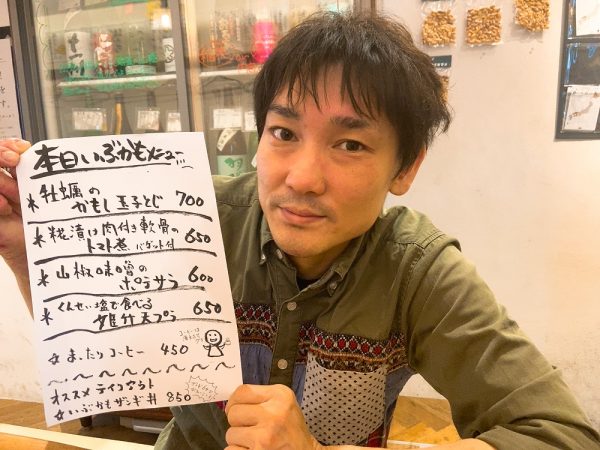 本日いぶかもメニュー
*牡蠣の
かもし玉子とじ 700
*糀漬け肉付き軟骨の
トマト煮 バゲット付 650
*山椒味噌の
ポテサラ 600
*くんせい塩で食べる
姫竹天ぷら 650
☆まったりコーヒー 450
オススメ テイクアウト
☆いぶかもザンギ丼 850